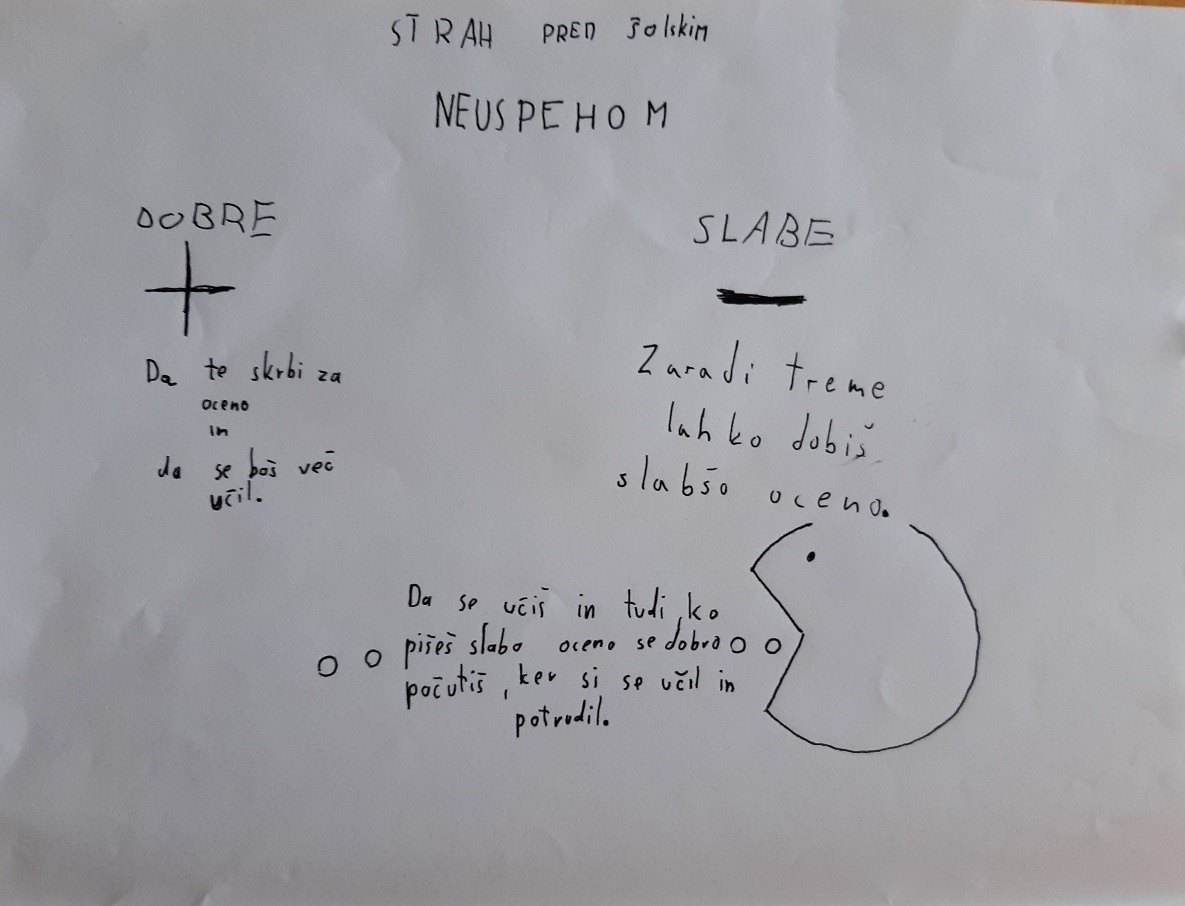 STRAH PRED šolskim
NEUSPEHOM
DOBRE
Da te skrbi za
oceno
in
da se boš več
učil.
SLABE
Zaradi treme
lahko dobiš
slabšo oceno.
Da se učiš in tudi, ko
pišeš slabo oceno se dobro
počutiš, ker si se učil in
potrudil.